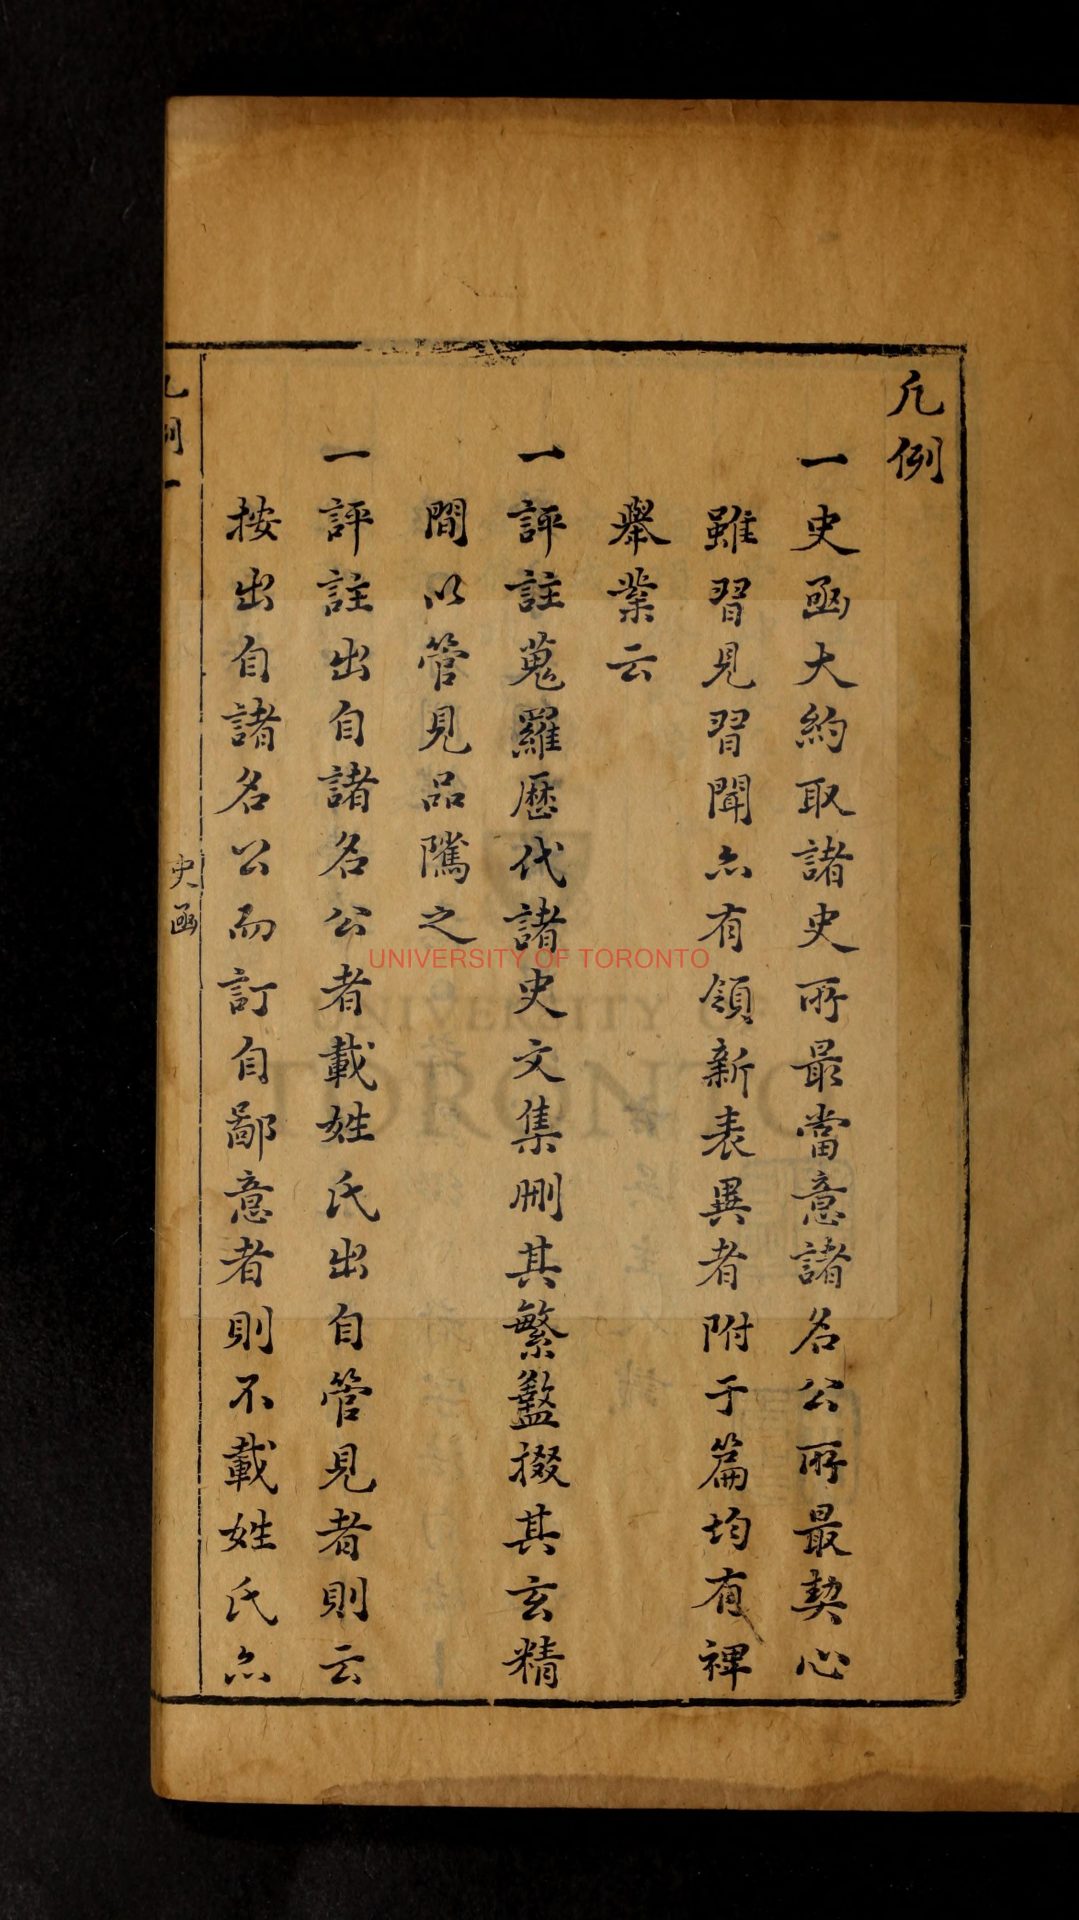 凡例
一史函大約取諸史所最當意諸名公所最契心
雖習見習聞亦有領新表異者附于篇均有裨
舉業云
一評註蒐羅歷代諸史文集刪其繁蕪掇其玄精
間以管見品隲之
一評註出自諸名公者載姓氏出自管見者則云
按出自諸名公而訂自鄙意者則不載姓氏亦
凡例一
史函
UNIVERSITY OF TORONTO
UNIVERSITY OF
TORONTO